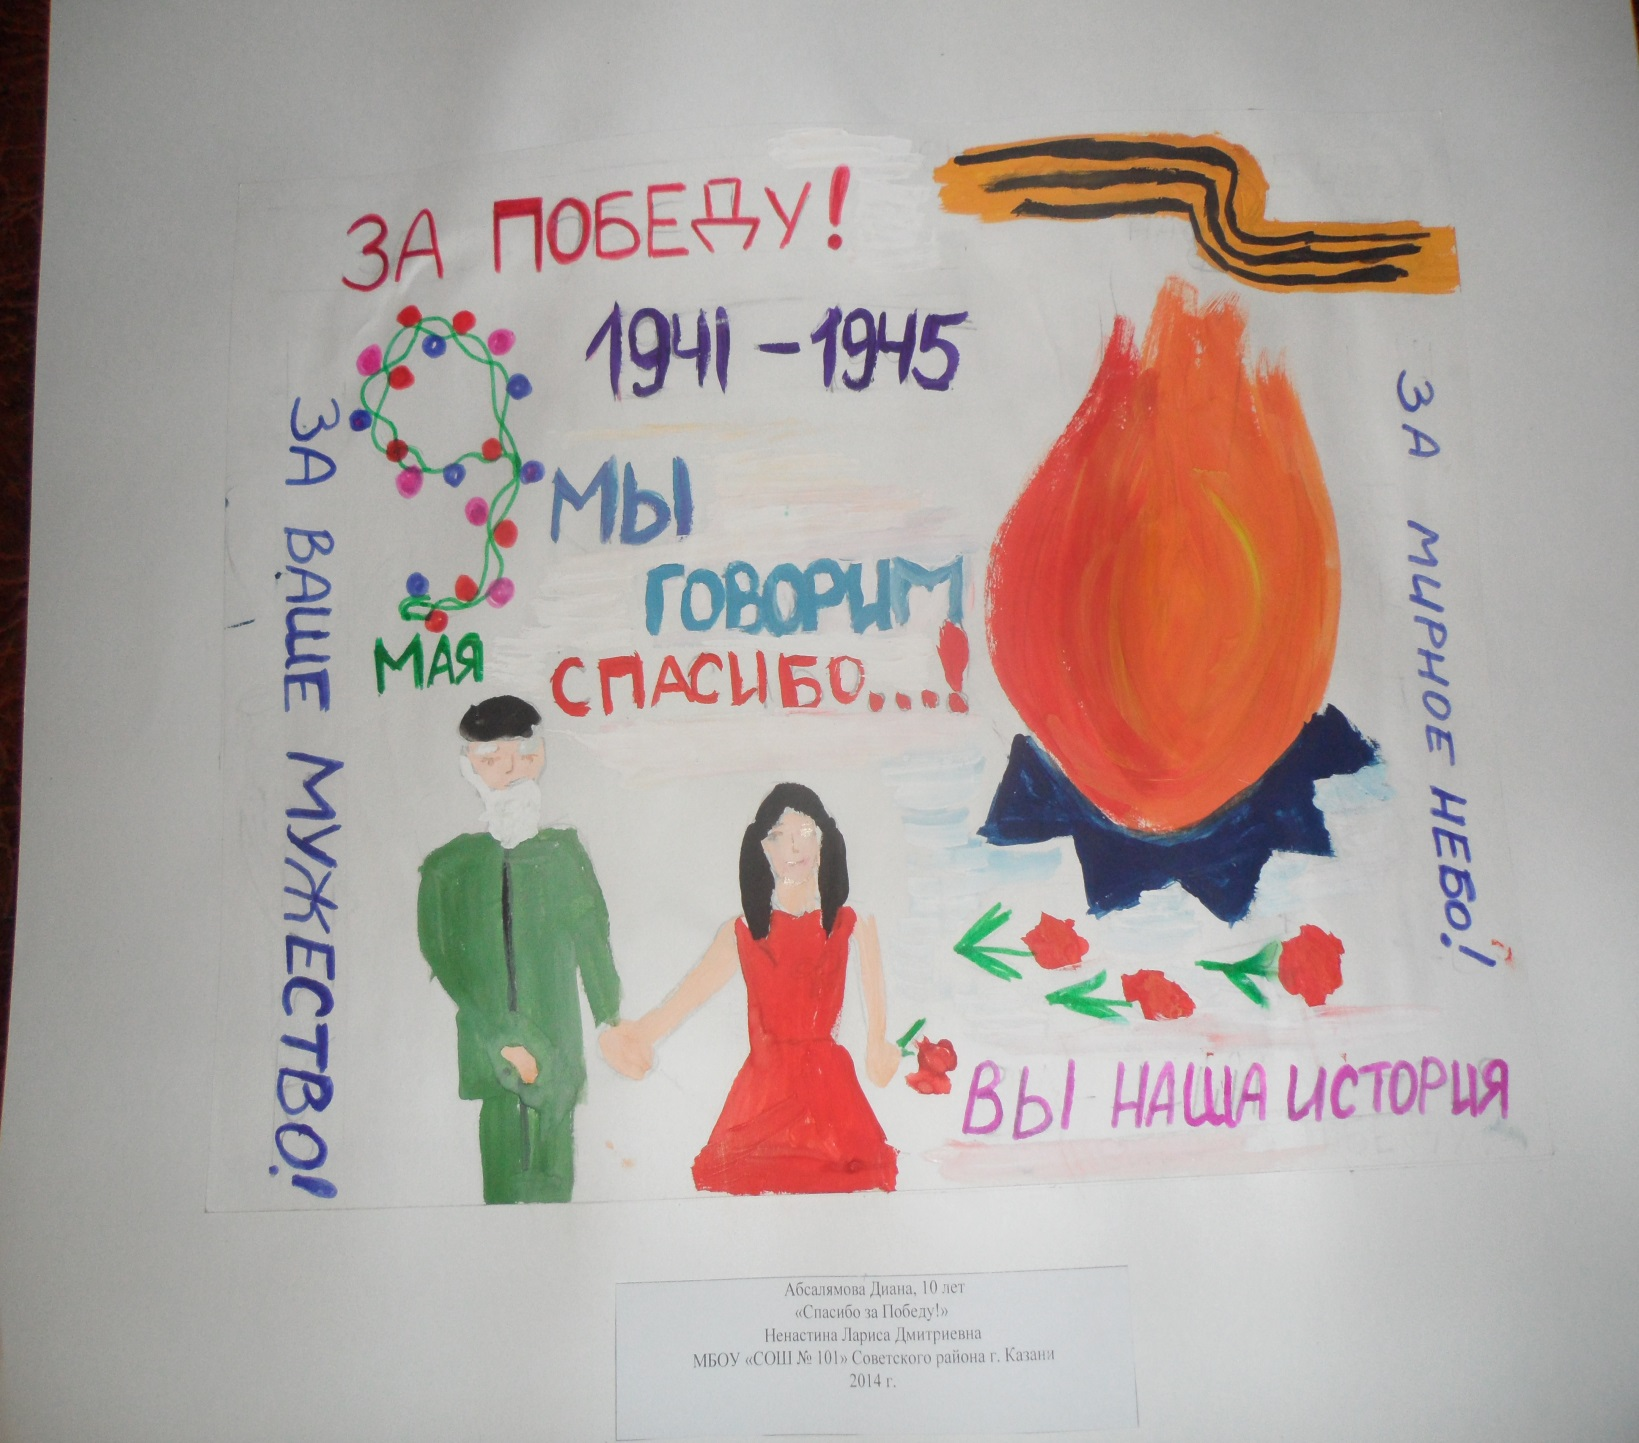 ЗА ПОБЕДУ!
1941-1945
9
МАЯ
МЫ
ГОВОРИМ
СПАСИБО...!
ЗА ВАШЕ МУЖЕСТВО!
ЗА МИРНОЕ НЕБО!
ВЫ НАША ИСТОРИЯ
Абсалямова Диана, 10 лет
«Спасибо за Победу!»
Ненастина Лариса Дмитриевна
МБОУ «СОШ № 101» Советского района г. Казани
2014 г.